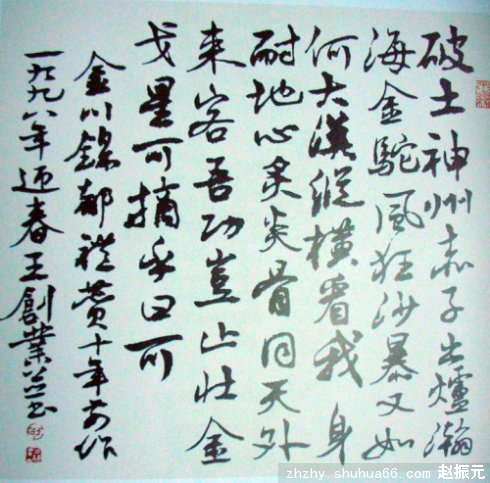 破土神州赤子出爐瀚
海金駝風狂沙暴又如
何大漠縱橫看我身
耐地心炙炎骨同天外
来客吾功豈止壮金
戈星可摘乎曰可
金川鎳都禮贊十年前作
一九九八年迎春王創業並书
zhzhy.shuhua66.com 赵振元